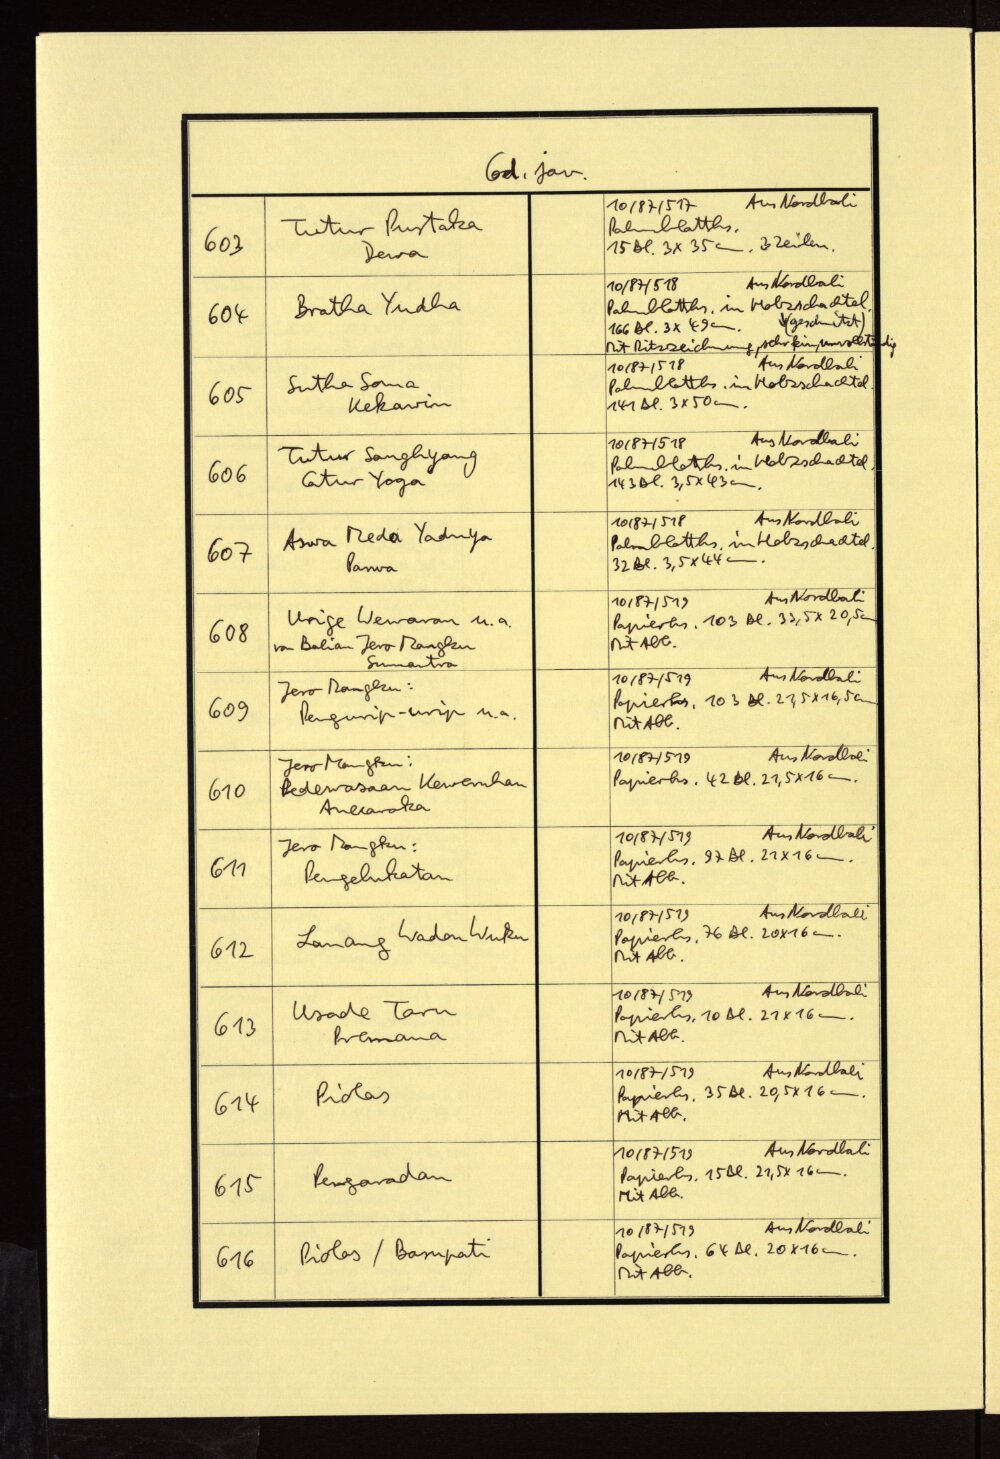 Cod. jav.
603
Tutur Pustaka
Dewa
10/87/517 Aus Nordbali
Palmblatths.
15 Bl. 3 x 35 cm. 3 Zeilen.
604
Bratha Yudha
10/87/518 Aus Nordbali
Palmblatths. in Holzschachtel
166 Bl. 3 x 49 cm. (geschnitzt)
Mit Ritzzeichnung, sehr fein, unvollständig
605
Sutha Soma
Kekawin
10/87/518 Aus Nordbali
Palmblatths. in Holzschachtel.
141 Bl. 3 x 50 cm.
606
Tutur Sanghyang
Catur Yoga
10/87/518 Aus Nordbali
Palmblatths. in Holzschachtel.
143 Bl. 3,5 x 43 cm.
607
Aswa Meda Yadnya
Parwa
10/87/518 Aus Nordbali
Palmblatths. in Holzschachtel.
32 Bl. 3,5 x 44 cm.
608
Urige Wewaran u.a.
von Balian Jero Mangku
Sumantra
10/87/519 Aus Nordbali
Papierhs. 103 Bl. 33,5 x 20,5 cm
Mit Abb.
609
Jero Mangku:
Pengurip-urip u.a.
10/87/519 Aus Nordbali
Papierhs. 103 Bl. 21,5 x 16,5 cm
Mit Abb.
610
Jero Mangku:
Pedewasaan Keweruhan
Anecaraka
10/87/519 Aus Nordbali
Papierhs. 42 Bl. 21,5 x 16 cm.
611
Jero Mangku:
Pengelukatan
10/87/519 Aus Nordbali
Papierhs. 97 Bl. 21 x 16 cm.
Mit Abb.
612
Lanang Wadon Wuku
10/87/519 Aus Nordbali
Papierhs. 76 Bl. 20 x 16 cm.
Mit Abb.
613
Usade Taru
Premana
10/87/519 Aus Nordbali
Papierhs. 10 Bl. 21 x 16 cm.
Mit Abb.
614
Piolas
10/87/519 Aus Nordbali
Papierhs. 35 Bl. 20,5 x 16 cm.
Mit Abb.
615
Pengaradan
10/87/519 Aus Nordbali
Papierhs. 15 Bl. 21,5 x 16 cm.
Mit Abb.
616
Piolas / Basupati
10/87/519 Aus Nordbali
Papierhs. 64 Bl. 20 x 16 cm.
Mit Abb.